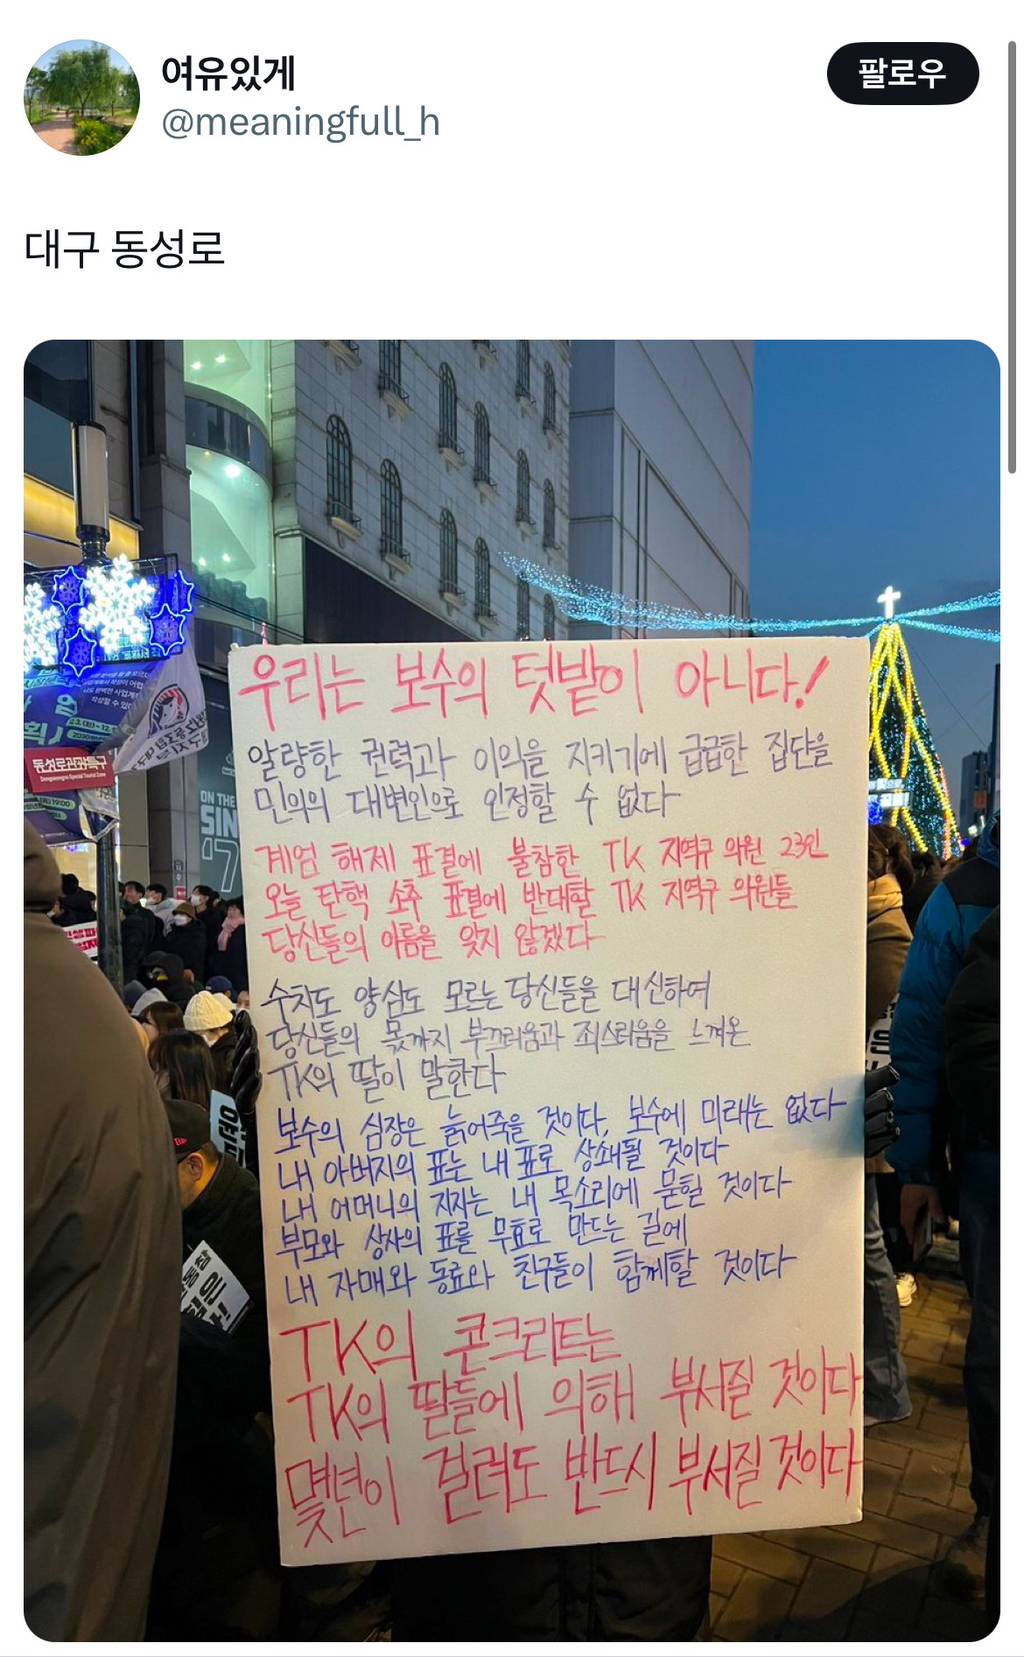 여유있게
팔로우
@meaningfull_h
대구 동성로
우리는 보수의 텃밭이 아니다!
알량한 권력과 이익을 지키기에 급급한 집단을
민의의 대변인으로 인정할 수 없다
계엄 해제 표결에 불참한 TK 지역구 의원 23인
오늘 탄핵 소추 표결에 반대할 TK 지역구 의원들
당신들의 이름을 잊지 않겠다
수치도 양심도 모르는 당신들을 대신하여
당신들의 몫까지 부끄러움과 죄스러움을 느껴온
TK의 딸이 말한다
보수의 심장은 늙어죽을 것이다, 보수에 미래는 없다
내 아버지의 표는 내 표로 상쇄될 것이다
내 어머니의 지지는 내 목소리에 묻힐 것이다
부모와 상사의 표를 무효로 만드는 길에
내 자매와 동료와 친구들이 함께할 것이다
TK의 콘크리트는
TK의 딸들에 의해 부서질 것이다
몇년이 걸려도 반드시 부서질 것이다
동성로관광특구
Dongseongno Special Tourist Zone
ON THE
SIN
'7